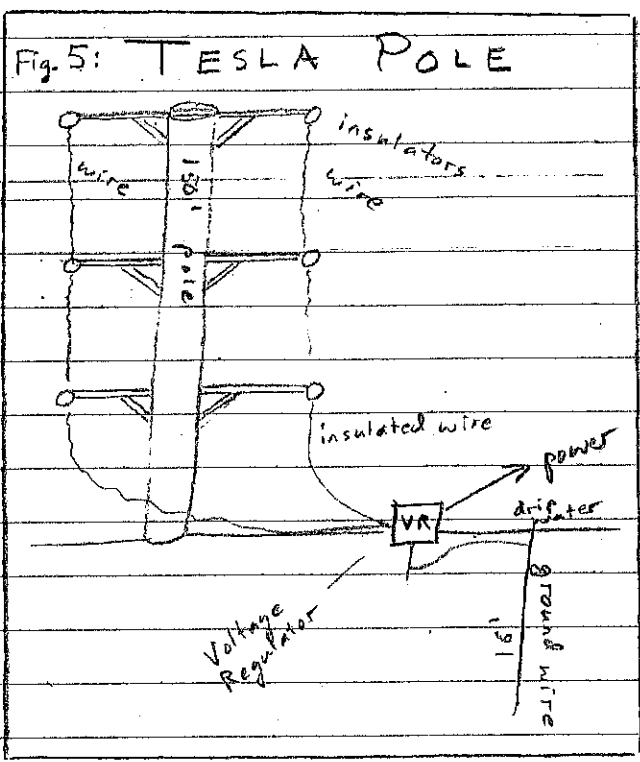 Fig. 5: TESLA POLE
insulators
wire
wire
150' pole
insulated wire
power
VR
drip water
Voltage
Regulator
ground wire